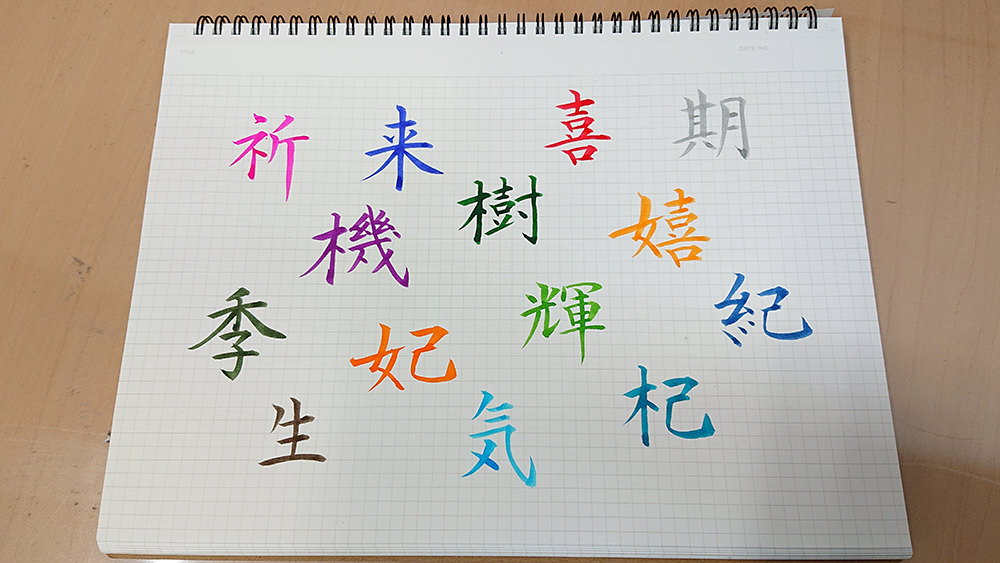 TITLE
DATE / NO.
祈 来 喜 期
機 樹 嬉
季 妃 輝 紀
生 気 杞